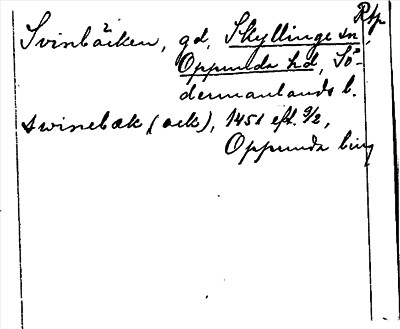 Rtp
Svinbäcken, gd, Skyllinge sn,
Oppunda hd, Sö-
dermanlands l.
swinebæk (ack), 1451 eft. 9/2,
Oppunda ting